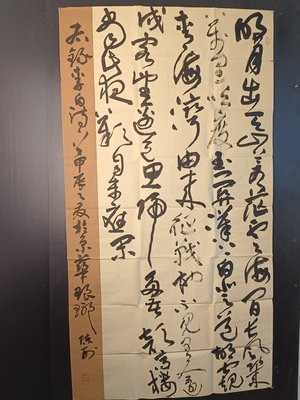 明月出天山蒼茫雲海間長風幾
萬里吹度玉門關漢下白登道胡窺
青海灣由來征戰地不見有人還
戍客望邊邑思歸多苦顏高樓
當此夜嘆息未應閑
右錄李白詩 甲辰之夏於京華